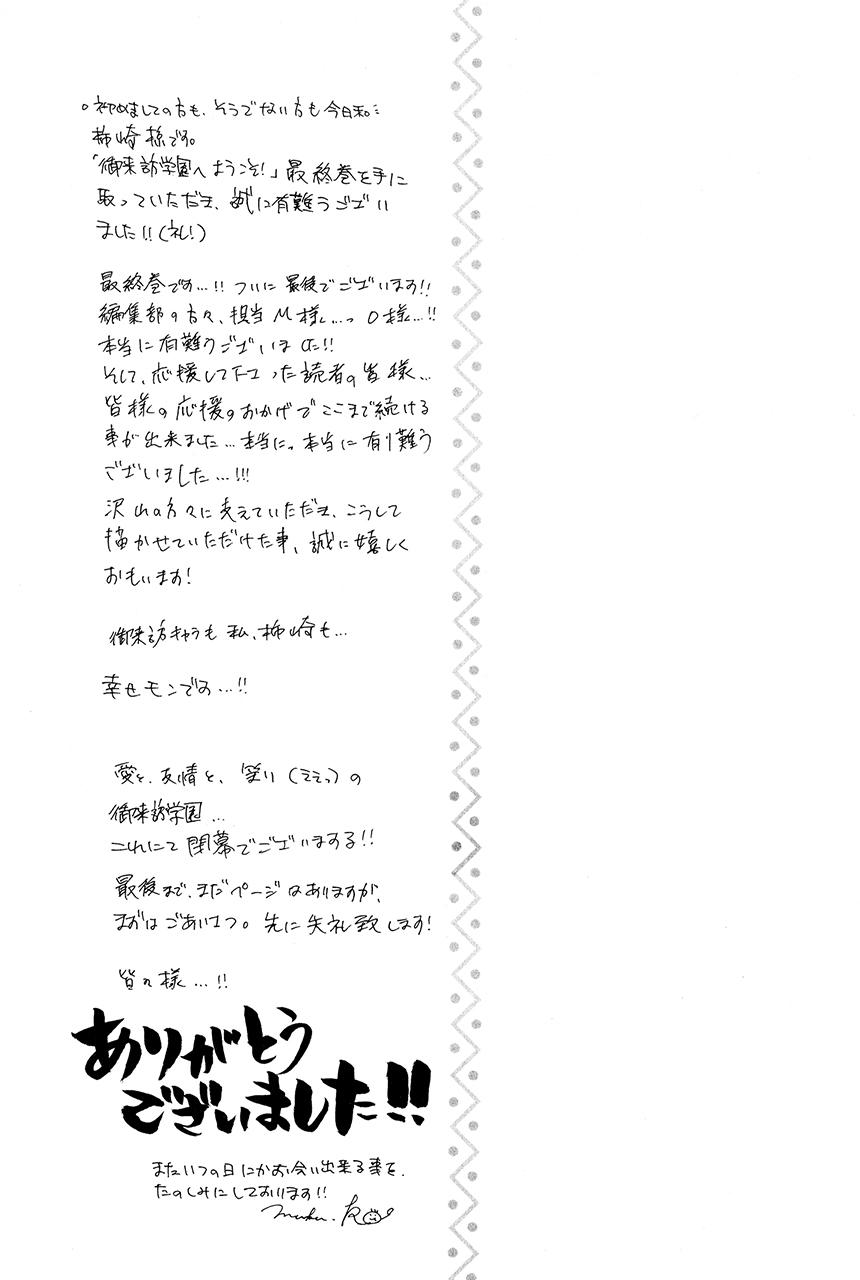 。初めましての方も、そうでない方も今日和。
柿崎椋です。
「御来訪学園へようこそ!」最終巻を手に
取っていただき、誠に有難うござい
ました!!(礼!)
最終巻です…!!ついに最後でございます!!
編集部の方々、担当M様…っO様…!!
本当に有難うございました!!
そして、応援して下さった読者の皆様…
皆様の応援のおかげでここまで続ける
事が出来ました…本当に。本当に有り難う
ございました…!!!
沢山の方々に支えていただき、こうして
描かせていただけた事、誠に嬉しく
おもいます!
御来訪キャラも私、柿崎も…
幸せモンです…!!
愛と、友情と、笑い(ええっ)の
御来訪学園…
これにて閉幕でございまする!!
最後まで、まだページはありますが、
まずはごあいさつ。先に失礼致します!
皆々様…!!
ありがとう
ございました!!
またいつの日にかお会い出来る事を、
たのしみにしております!!